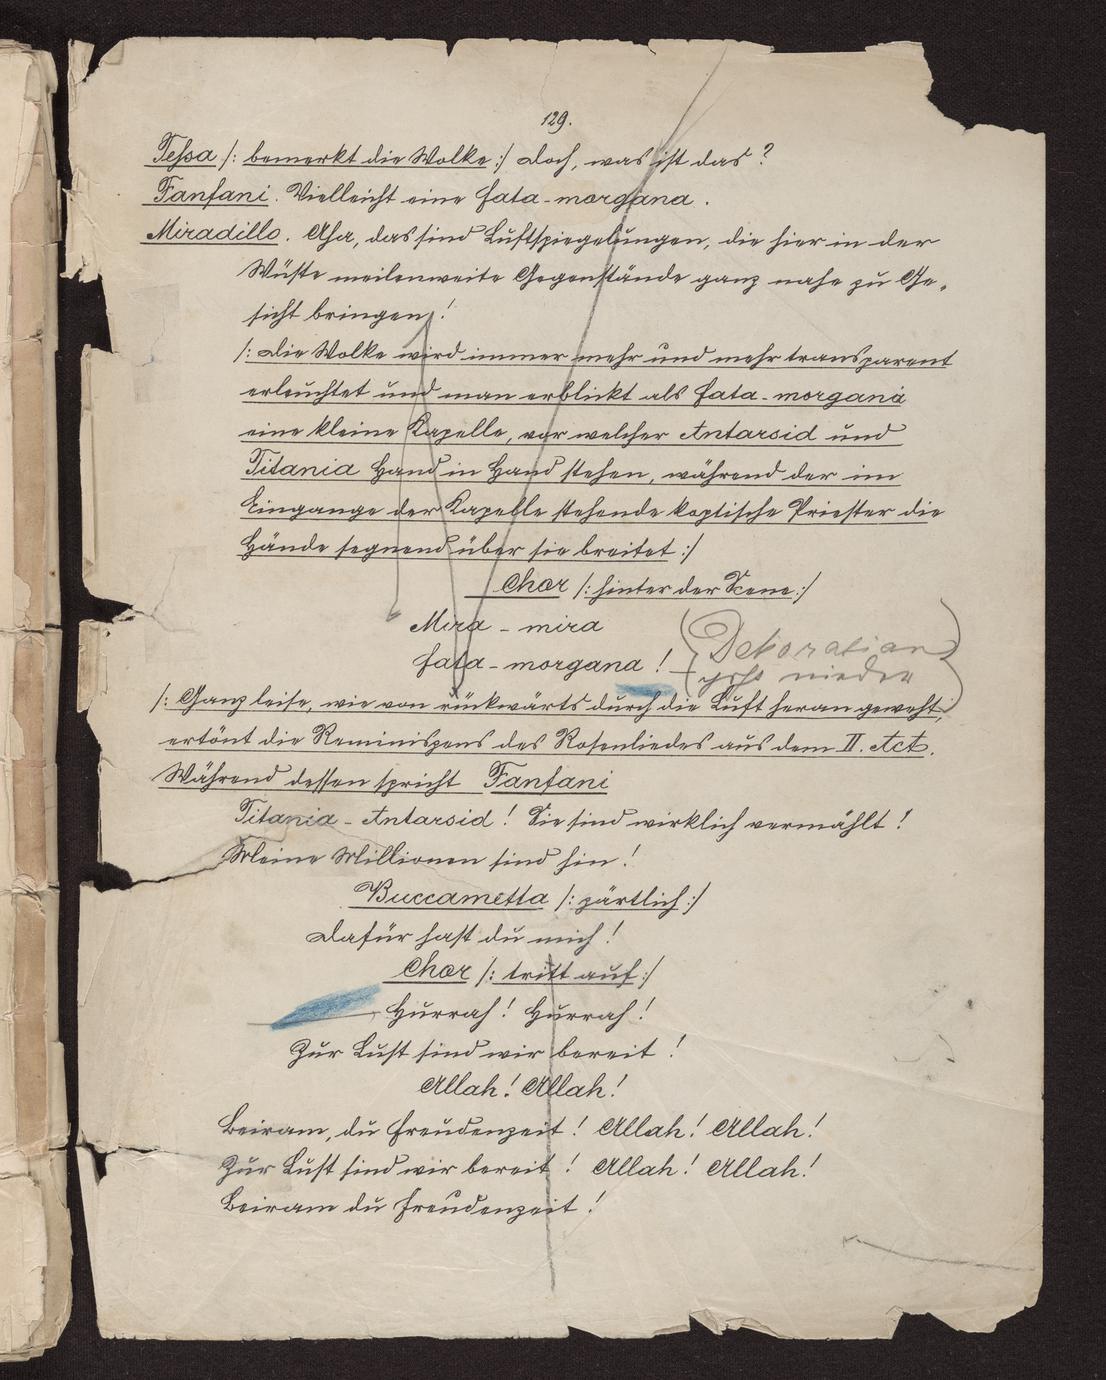 129.
Tessa /: bemerkt die Wolke :/ Doch, was ist das?
Fanfani. Vielleicht eine fata-morgana.
Miradillo. Aha, das sind Luftspiegelungen, die hier in der
Wüste meilenweite Gegenstände ganz nahe zu Ge-
sicht bringen!
/: Die Wolke wird immer mehr und mehr transparent
erleuchtet und man erblickt als fata-morgana
eine kleine Kapelle, vor welcher Antarsid und
Titania Hand in Hand stehen, während der im
Eingange der Kapelle stehende koptische Priester die
Hände segnend über sie breitet :/
Chor /: hinter der Scene :/
Mira-mira
fata-morgana!
Dekoration
geht nieder
/: Ganz leise, wie von rückwärts durch die Luft heran geweht,
ertönt die Reminiszens des Rosenliedes aus dem II. Act.
Während dessen spricht Fanfani
Titania-Antarsid! Sie sind wirklich vermählt!
Meine Millionen sind hin!
Buccametta /: zärtlich :/
Dafür hast du mich!
Chor /: tritt auf :/
Hurrah! Hurrah!
Zur Lust sind wir bereit!
Allah! Allah!
Beiram, du Freudenzeit! Allah! Allah!
Zur Lust sind wir bereit! Allah! Allah!
Beiram du Freudenzeit!